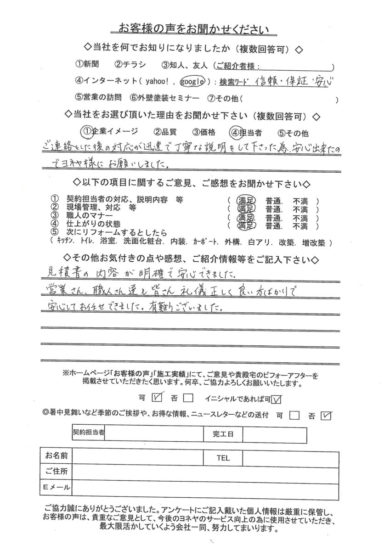 お客様の声をお聞かせください
◇当社を何でお知りになりましたか（複数回答可）◇
①新聞　②チラシ　③知人、友人（ご紹介者様：　　　　）
④インターネット（ yahoo! , google ）：検索ワード 信頼・保証・安心
⑤営業の訪問　⑥外壁塗装セミナー　⑦その他（　　　　）
◇当社をお選び頂いた理由をお聞かせ下さい（複数回答可）◇
①企業イメージ　②品質　③価格　④担当者　⑤その他
ご連絡をした後の対応が迅速で丁寧な説明をして下さった為、安心出来たの
でヨネヤ様にお願いしました。
◇以下の項目に関するご意見、ご感想をお聞かせ下さい◇
① 契約担当者の対応、説明内容　等　（ 満足　普通　不満 ）
② 現場管理、対応　等　（ 満足　普通　不満 ）
③ 職人のマナー　（ 満足　普通　不満 ）
④ 仕上がりの状態　（ 満足　普通　不満 ）
⑤ 次にリフォームするとしたら
（ キッチン、トイレ、浴室、洗面化粧台、内装、カーポート、外構、白アリ、改築、増改築 ）
◇その他お気付きの点や感想、ご紹介情報等をご記入下さい◇
見積書の内容が明確で安心できました。
営業さん、職人さん達と皆さん礼儀正しく良い方ばかりで
安心してお任せできました。有難うございました。
※ホームページ「お客様の声」「施工実績」にて、ご意見や貴殿宅のビフォーアフターを
掲載させていただきたく思います。何卒、ご協力よろしくお願いいたします。
可 ☑　否 ☐　イニシャルであれば可☑
◎暑中見舞いなど季節のご挨拶や、お得な情報、ニュースレターなどの送付　可 ☐　否 ☑
契約担当者　完工日
お名前　TEL
ご住所
Eメール
ご協力誠にありがとうございました。アンケートにご記入戴いた個人情報は厳重に保管し、
お客様の声は、貴重なご意見として、今後のヨネヤのサービス向上の為に使用させていただき、
最大限活かしていくよう会社一同、努力してまいります。